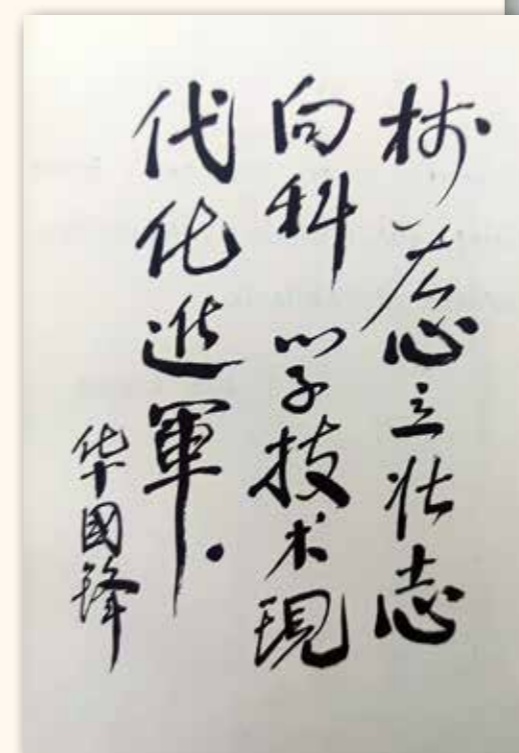 树雄心立壮志
向科学技术現
代化進軍.
华國锋